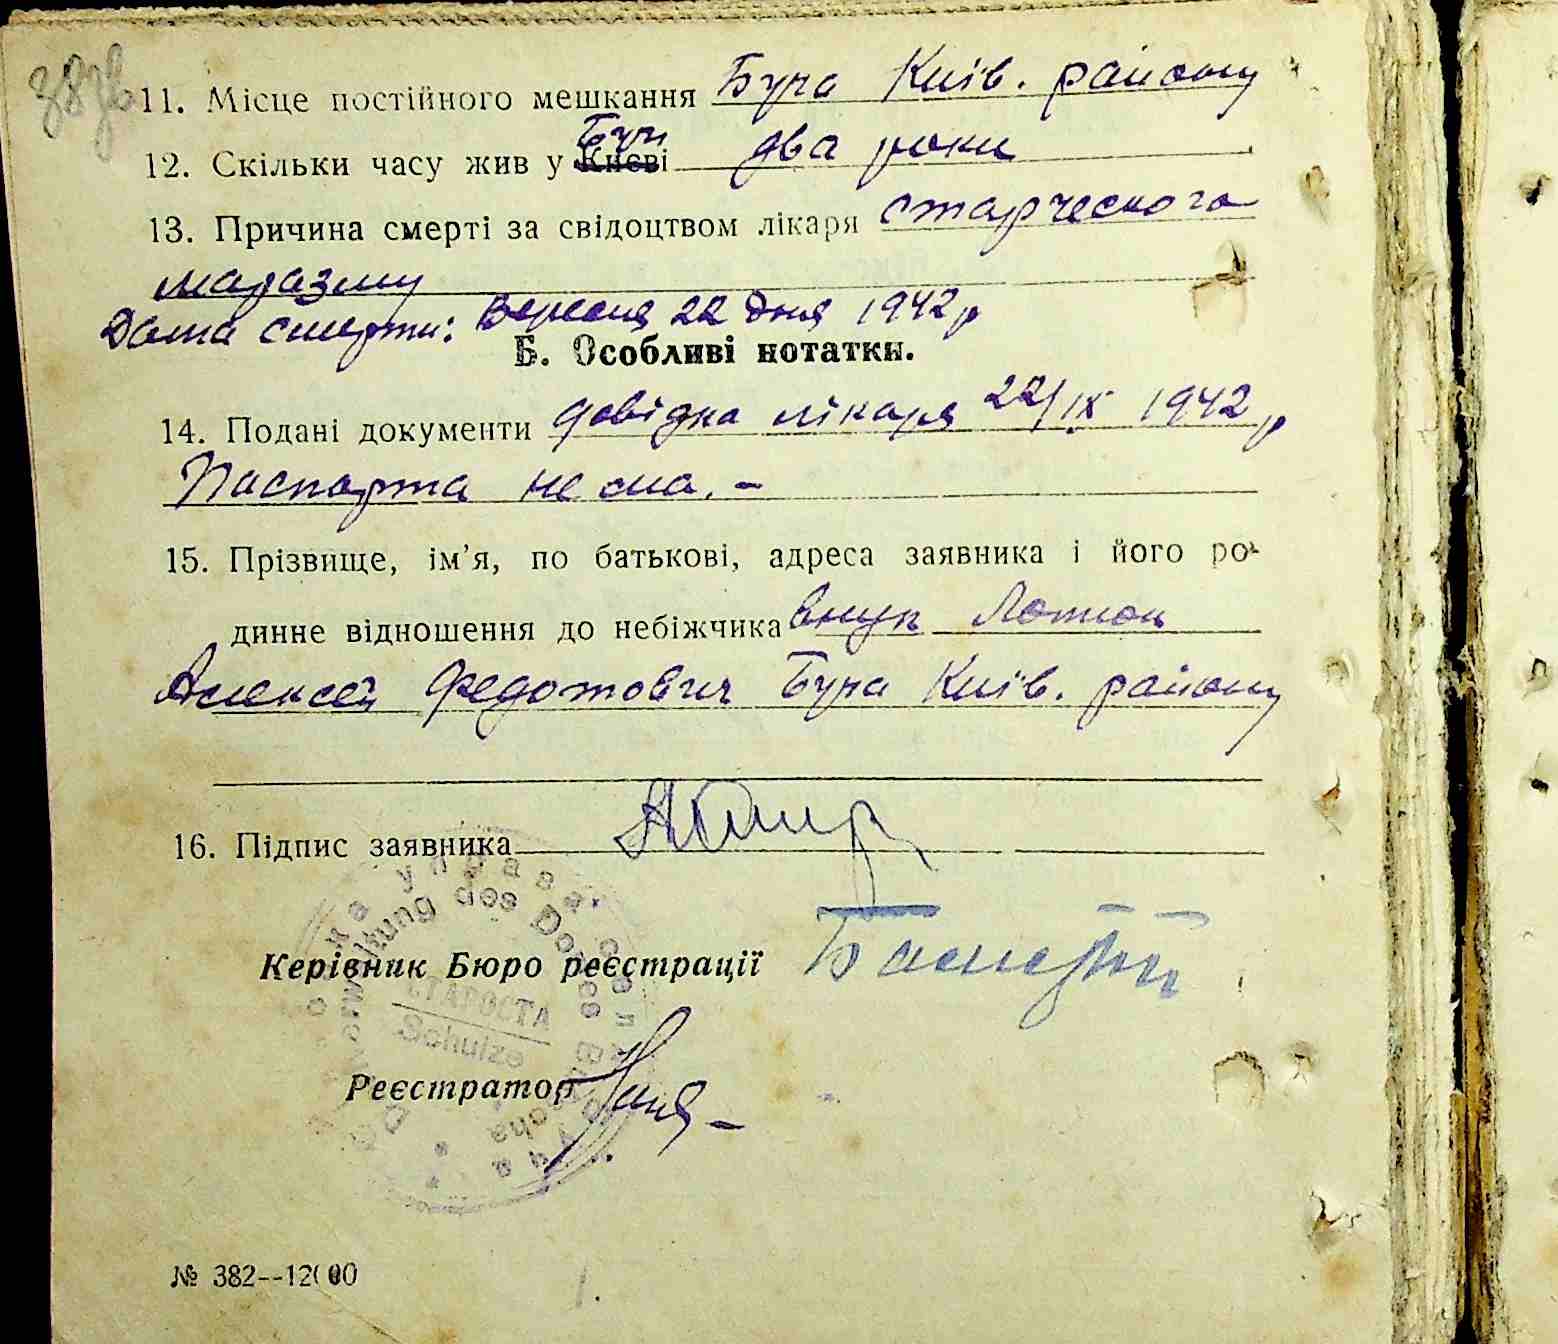 38 зв
11. Місце постійного мешкання Буча Київ. району
12. Скільки часу жив у Києві Бучі два роки
13. Причина смерті за свідоцтвом лікаря старческого
маразму
Дата смерти: Вересня 22 дня 1942 р
Б. Особливі нотатки.
14. Подані документи довідка лікаря 22/IX 1942 р
Паспорта не ма. –
15. Прізвище, ім'я, по батькові, адреса заявника і його ро-
динне відношення до небіжчика внук
Алексей Федотович Буча Київ. району
16. Підпис заявника
Керівник Бюро реєстрації
СТАРОСТА
Schulze
Реєстратор
№ 382--12000